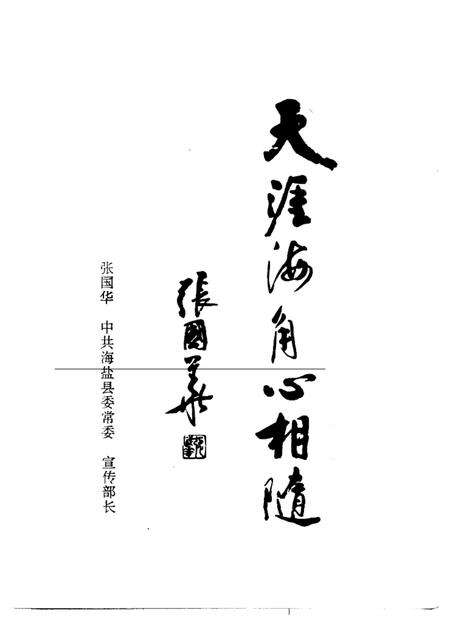 天涯海角心相随
張國華
张国华 中共海盐县委常委 宣传部长